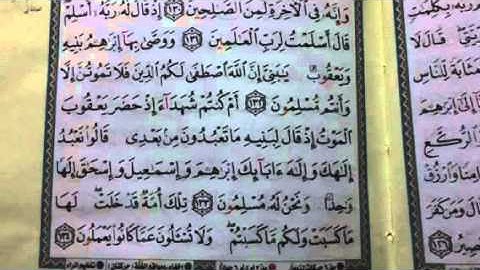 وَإِنَّهُ فِى ٱلْأَخِرَةِ لَمِنَ ٱلصَّٰلِحِينَ ١٣٠ إِذْ قَالَ لَهُ رَبُّهُ أَسْلِمْ
قَالَ أَسْلَمْتُ لِرَبِّ ٱلْعَٰلَمِينَ ١٣١ وَوَصَّىٰ بِهَا إِبْرَٰهِمُ بَنِيهِ
وَيَعْقُوبُ يَٰبَنِىَّ إِنَّ ٱللَّهَ ٱصْطَفَىٰ لَكُمُ ٱلدِّينَ فَلَا تَمُوتُنَّ إِلَّا
وَأَنتُم مُّسْلِمُونَ ١٣٢ أَمْ كُنتُمْ شُهَدَآءَ إِذْ حَضَرَ يَعْقُوبَ
ٱلْمَوْتُ إِذْ قَالَ لِبَنِيهِ مَا تَعْبُدُونَ مِنۢ بَعْدِى قَالُوا۟ نَعْبُدُ
إِلَٰهَكَ وَإِلَٰهَ ءَابَآئِكَ إِبْرَٰهِمَ وَإِسْمَٰعِيلَ وَإِسْحَٰقَ إِلَٰهًا
وَٰحِدًا وَنَحْنُ لَهُ مُسْلِمُونَ ١٣٣ تِلْكَ أُمَّةٌ قَدْ خَلَتْ لَهَا
مَا كَسَبَتْ وَلَكُم مَّا كَسَبْتُمْ وَلَا تُسْـَٔلُونَ عَمَّا كَانُوا۟ يَعْمَلُونَ ١٣٤
بِكَلِمَٰتٍ
قَالَ لَا
مَثَابَةً لِّلنَّاسِ
إِلَىٰٓ إِبْرَٰهِمَ
ٱلرُّكَّعِ
وَٱرْزُقْ
وَمَن كَفَرَ